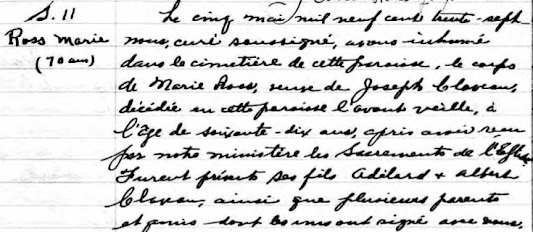 S. 11
Ross Marie
(70 ans)
Le cinq mai mil neuf cent trente-sept
nous, curé soussigné, avons inhumé
dans le cimetière de cette paroisse, le corps
de Marie Ross, veuve de Joseph Claveau,
décédée en cette paroisse l'avant veille, à
l'âge de soixante-dix ans, après avoir reçu
par notre ministère les Sacrements de l'Eglise.
Furent présents ses fils Adélard & Albert
Claveau, ainsi que plusieurs parents
et amis dont les uns ont signé avec nous.